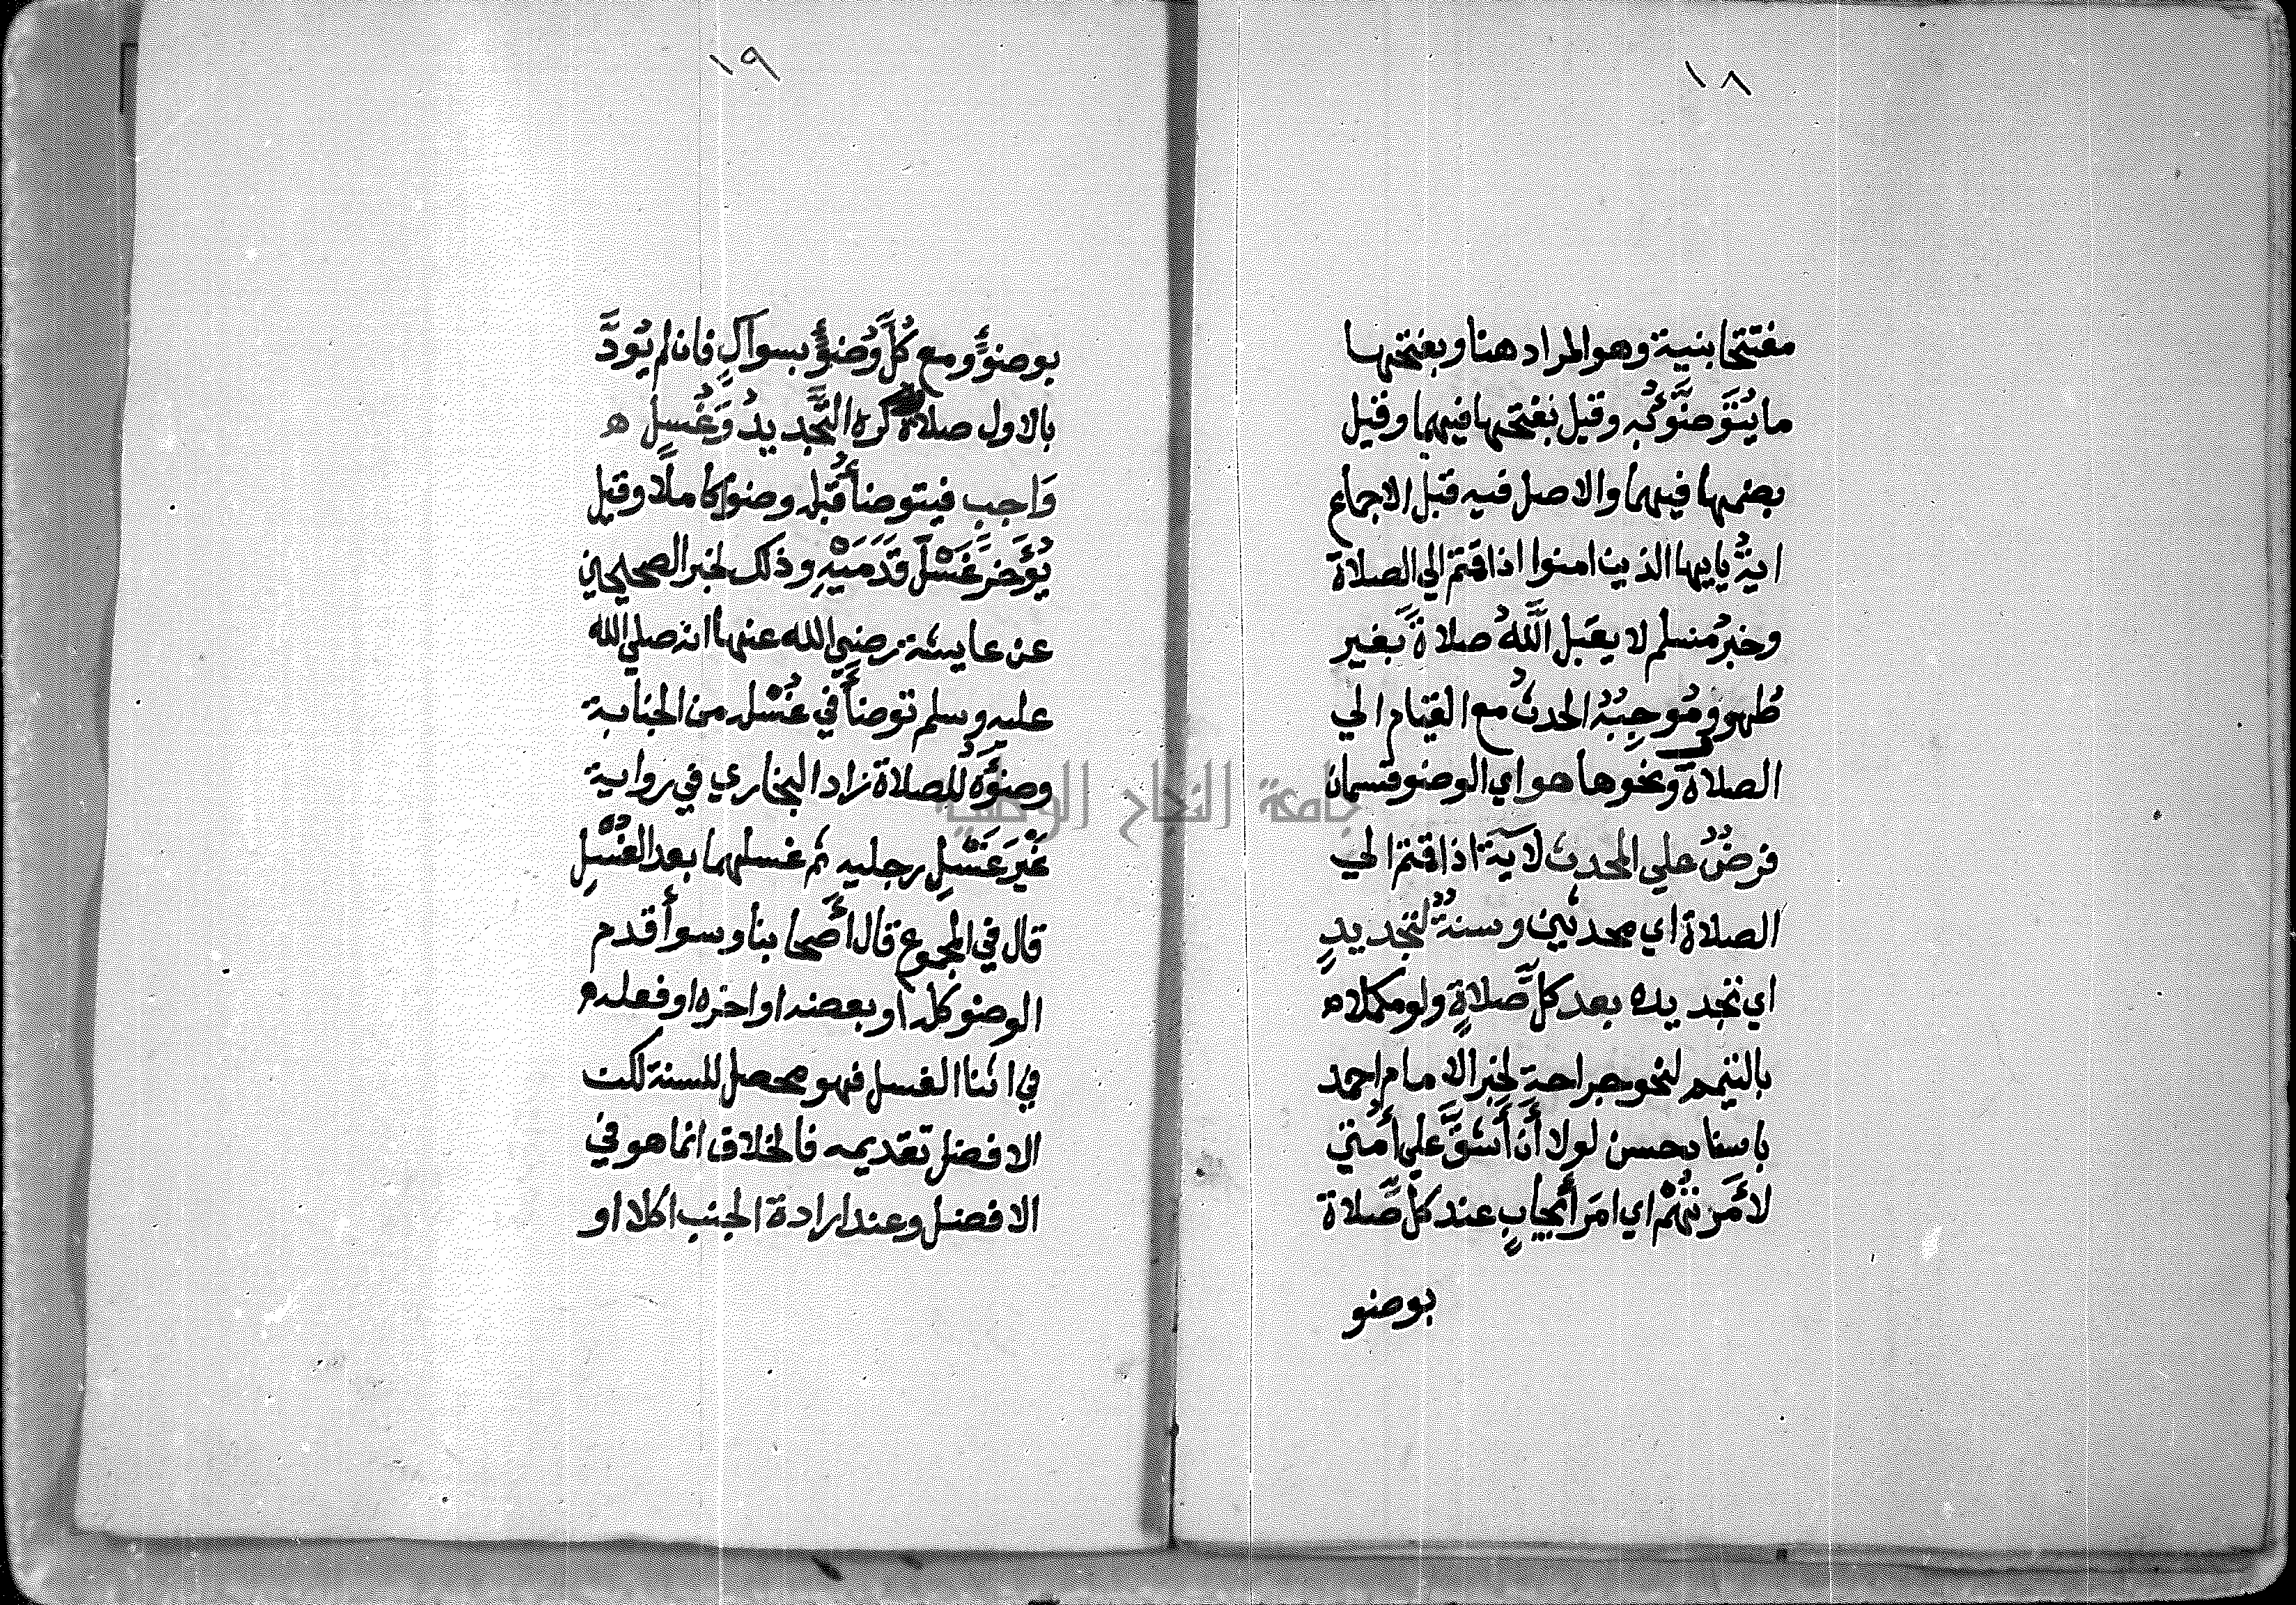 ١٨
مفتتحا بنية وهو المراد هنا وبفتحها
ما يُتَوَضَّؤُ به وقيل بفتحها فيهما وقيل
بضمها فيهما والاصل فيه قبل الاجماع
اية يايها الذين امنوا اذا قمتم الي الصلاة
وخبرُ مسلم لا يقبل اللَّهُ صلاةً بغير
طُهور ومُوجِبُهُ الحدثُ مع القيام الي
الصلاة ونحوها هو اي الوضو قسمان
فرضٌ علي المحدث لآية اذا قمتم الي
الصلاة اي محدثين وسنةٌ لتجديدٍ
اي تجديده بعد كلِّ صلاةٍ ولو مكملا
بالتيمم لنحو جراحة لخبر الامام احمد
باسناد حسن لولا أن أَشُقَّ علي أُمتي
لأَمَرْتُهُمْ اي امَر أيجابٍ عند كلِّ صلاة
بوضو
جامعة النجاح الوطنية
١٩
بوضوءٍ ومع كُلِّ وُضوءٍ بسواكٍ فان لم يُودِّ
بالاول صلاة كره التَّجديدُ وَغُسلٍ
وَاجبٍ فيتوضأُ قبله وضوءً كاملا وقيل
يُؤَخرُ غَسْلَ قَدَمَيْهِ وذلك لخبر الصحيحين
عن عايشة رضي الله عنها انه صلي الله
عليه وسلم توضأَ في غُسْله من الجنابة
وضوُءَهُ للصلاة زاد البخاري في رواية
غَيْرَ غَسْلِ رجليه ثم غسلهما بعد الغُسْلِ
قال في المجموع قال أَصحابنا وسوأ قدم
الوضو كله أو بعضه او اخره او فعله
في اثنا الغسل فهو محصل للسنة لكن
الافضل تقديمه فالخلاق انما هو في
الافضل وعند ارادة الجنب اكلا او